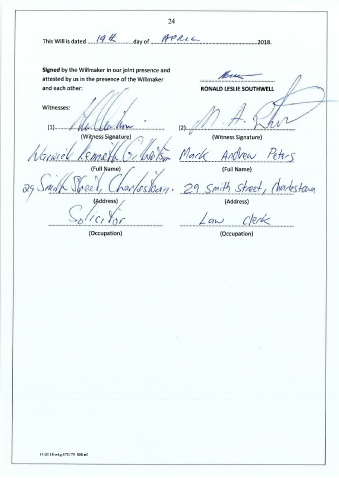 24
This Will is dated 19th day of APRIL 2018.
Signed by the Willmaker in our joint presence and
attested by us in the presence of the Willmaker
and each other:
RONALD LESLIE SOUTHWELL
Witnesses:
(1) (2)
(Witness Signature) (Witness Signature)
Warwick Kenneth Mark Andrew Peters
(Full Name) (Full Name)
29 Smith Street, Charlestown. 29 Smith Street, Charlestown
(Address) (Address)
Solicitor Law Clerk
(Occupation) (Occupation)